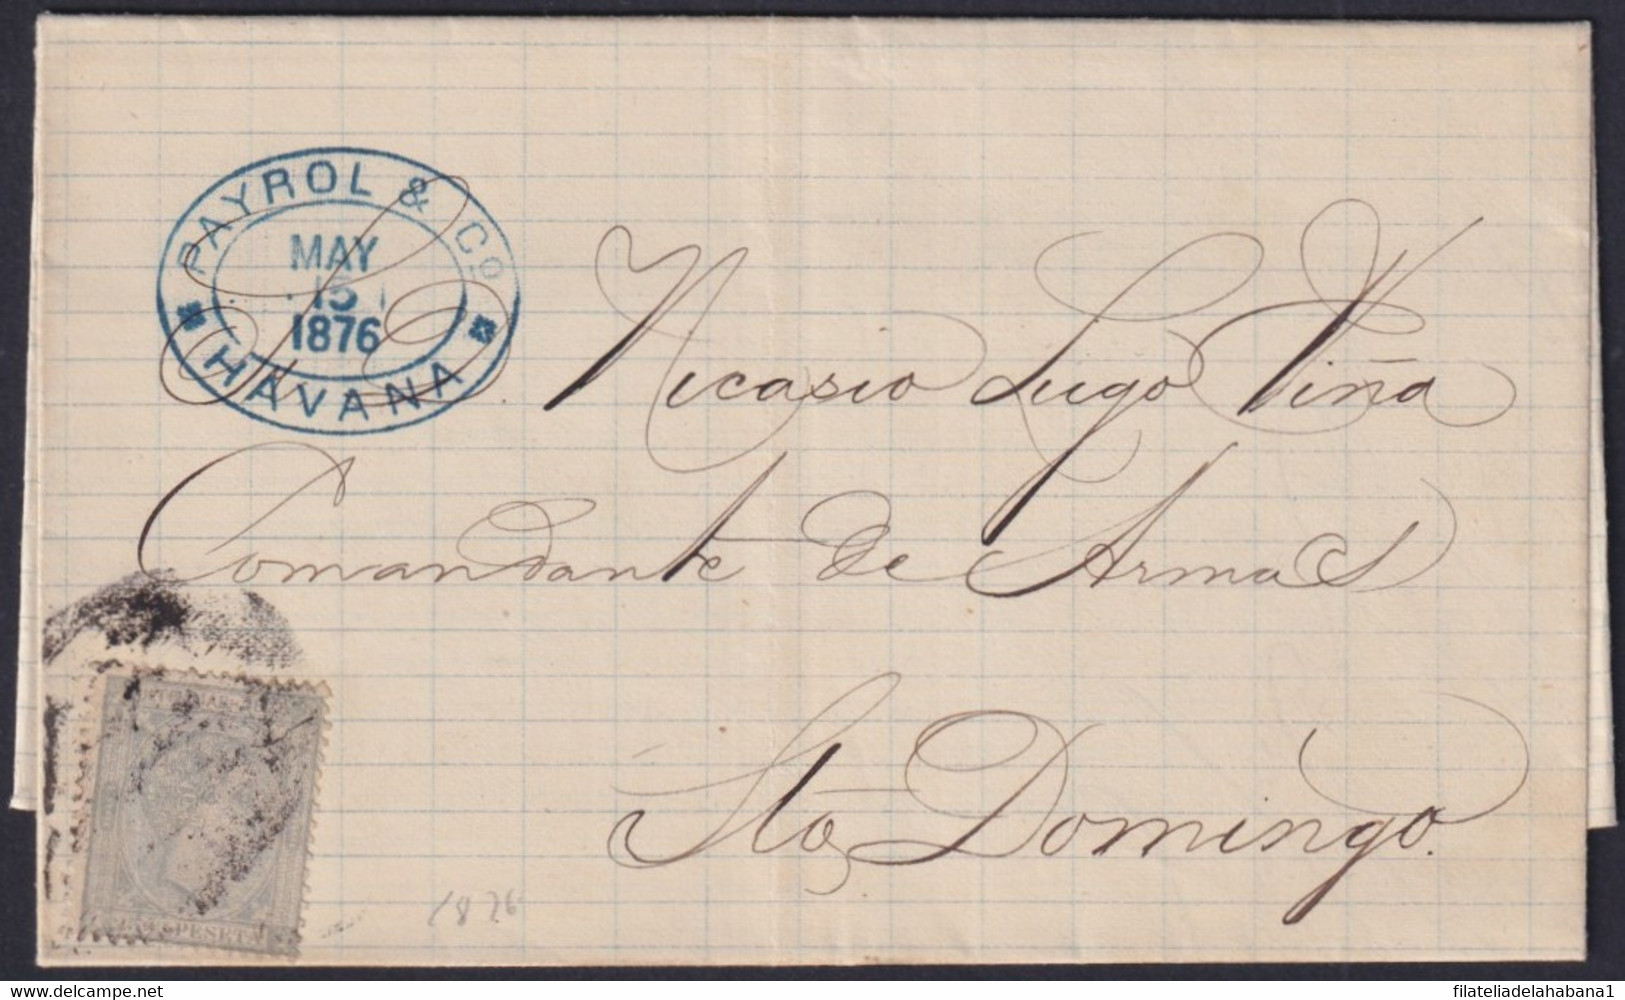 PAYROL & Co
MAY
15
1876
HAVANA
Nicasio Lugo Viña
Comandante de Armas
Sto Domingo.
1876
PESETA
filateliadelahabana1